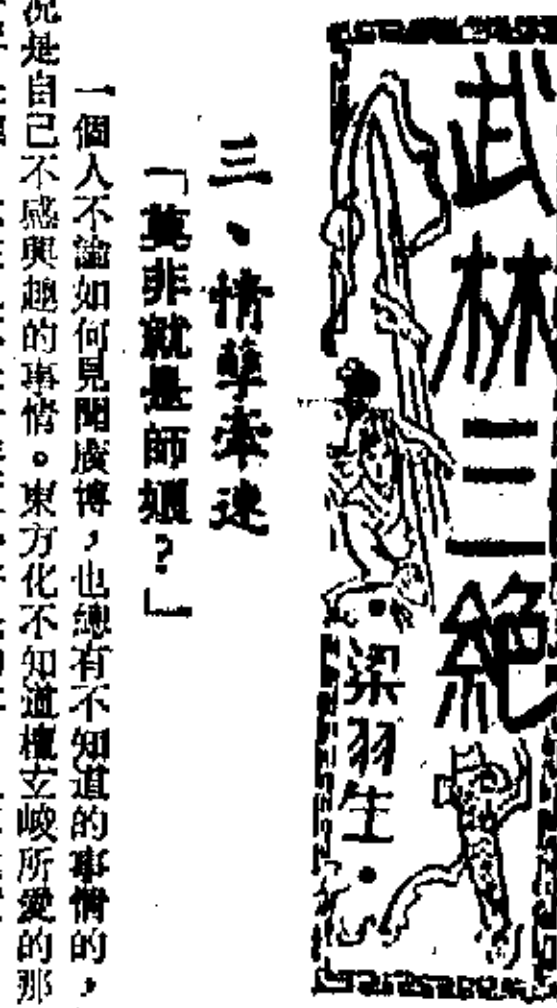 武林三絕
·梁羽生·
三、情孽牽連
「莫非就是師娘？」
一個人不論如何見聞廣博，也總有不知道的事情的，
況是自己不感興趣的事情。東方化不知道檀立峻所愛的那